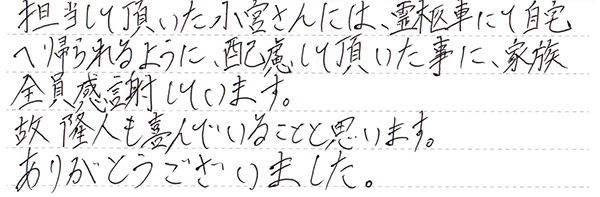 担当して頂いた小宮さんには、霊柩車にて自宅
へ帰られるように、配慮して頂いた事に、家族
全員感謝しています。
故 隆人も喜んでいることと思います。
ありがとうございました。